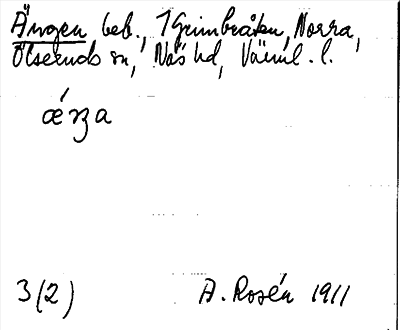 Ängen, beb., 1 Grimbråten, Norra,
Ölserud sn, Näs hd, Värml. l.
ǽrza
3(2) A. Rosén 1911